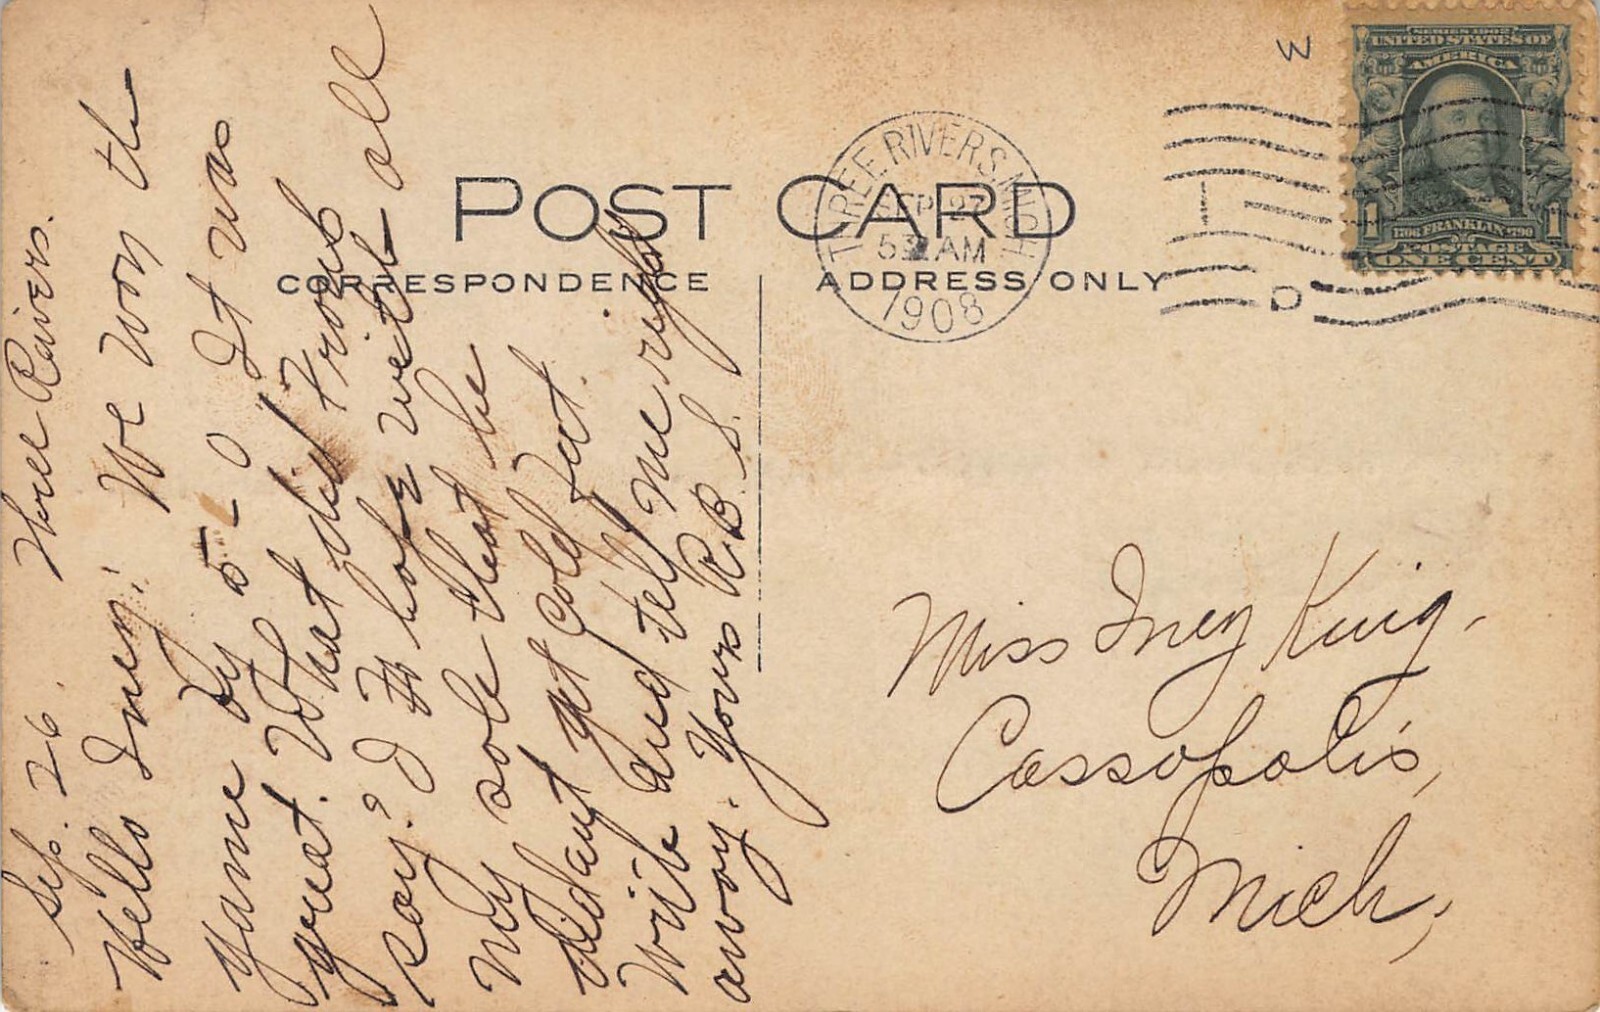 POST CARD
CORRESPONDENCE
ADDRESS ONLY
THREE RIVERS MICH
SEP 27
5 AM
1908
SERIES 1902
UNITED STATES OF
AMERICA
1706 FRANKLIN 1790
1 1
POSTAGE
ONE CENT
3
D
Sep. 26. Three Rivers.
Hello Iney! We won the
game by 5-0 It was
great. What did Frank
say? I to hope with all
my sole that he
didant get cold feet.
Write and tell me right
away. Yours R.B.S.
Miss Iney King.
Cassopolis,
Mich,